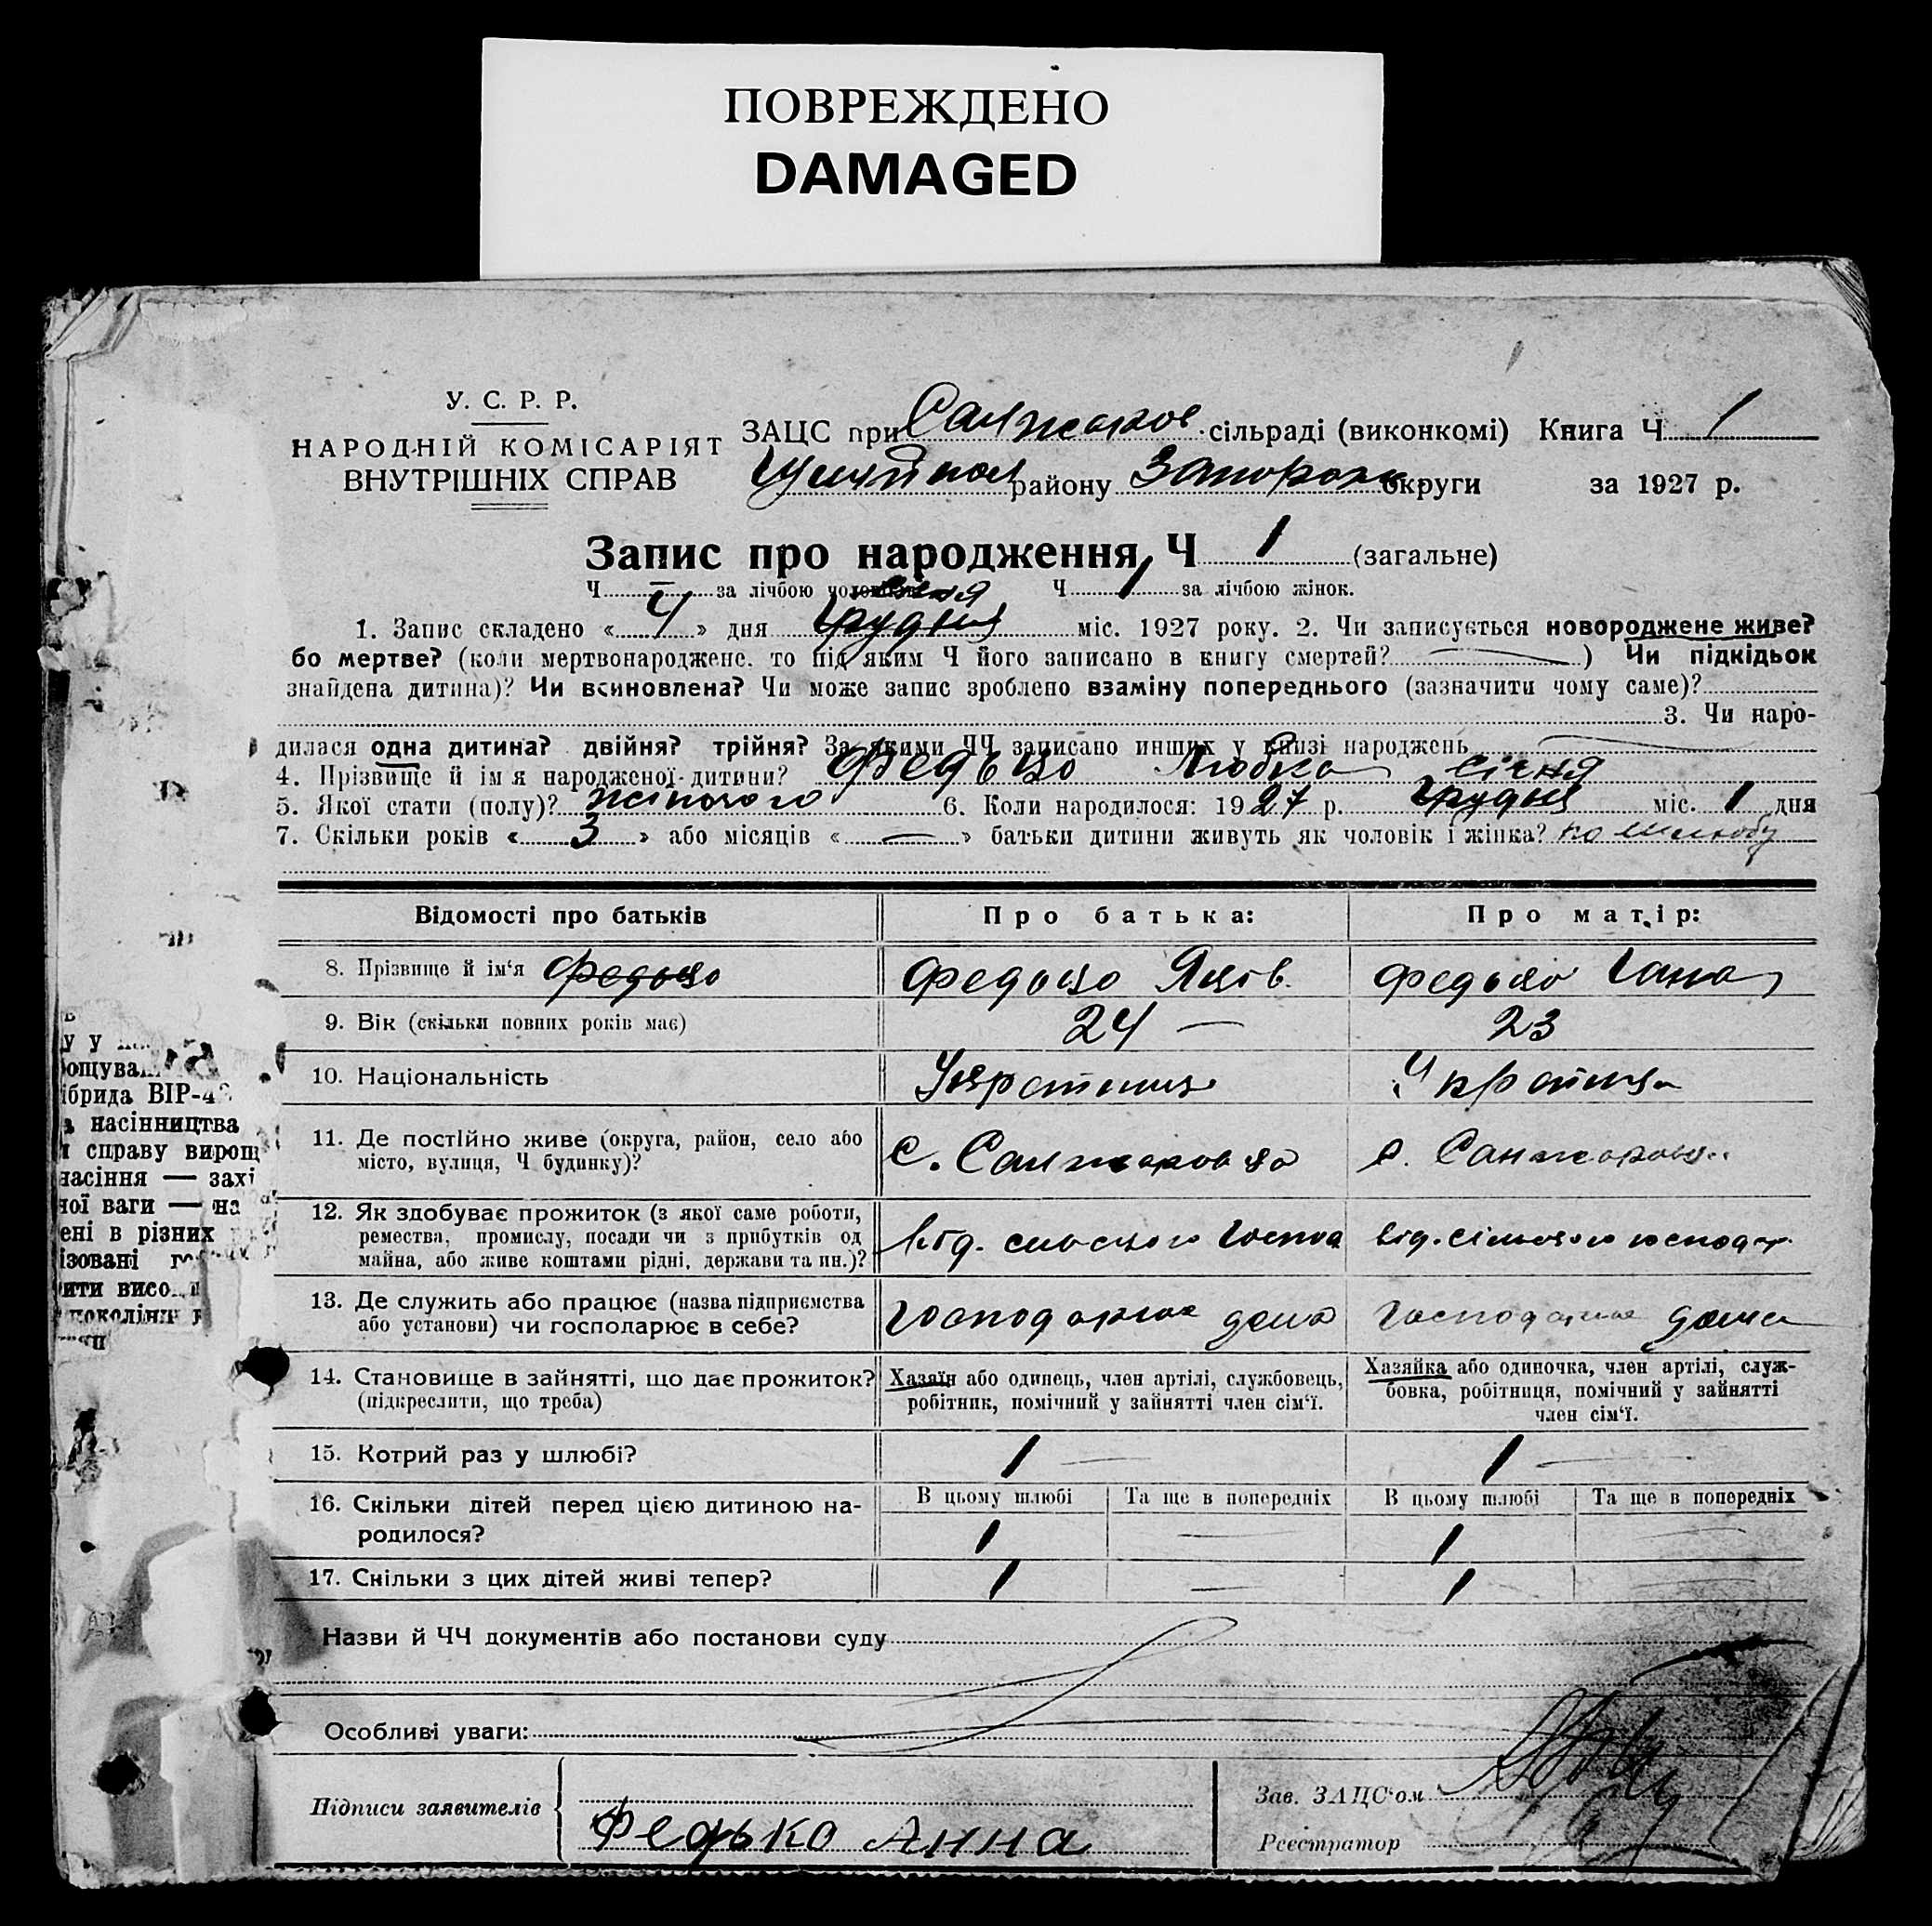 ПОВРЕЖДЕНО
DAMAGED
У. С. Р. Р.
НАРОДНІЙ КОМІСАРІЯТ
ВНУТРІШНІХ СПРАВ
ЗАЦС при Санжаров сільраді (виконкомі) Книга Ч 1
району Запорож округи за 1927 р.
Запис про народження Ч 1 (загальне)
Ч — за лічбою чоловіків Ч 1 за лічбою жінок.
січня
1. Запис складено « 4 » дня грудня міс. 1927 року. 2. Чи записується новороджене живе?
бо мертве? (коли мертвонароджене, то під яким Ч його записано в книгу смертей? — ) Чи підкідьок
знайдена дитина)? Чи всиновлена? Чи може запис зроблено взаміну попереднього (зазначити чому саме)?
3. Чи наро-
дилася одна дитина? двійня? трійня? За якими ЧЧ записано инших у книзі народжень
4. Прізвище й ім'я народженої дитини? Федько Любка січня
5. Якої стати (полу)? жіночого 6. Коли народилося: 1927 р. грудня міс. 1 дня
7. Скільки років « 3 » або місяців « — » батьки дитини живуть як чоловік і жінка? по шлюбу
Відомості про батьків Про батька: Про матір:
8. Прізвище й ім'я Федько Федько Яків Федько Гана
9. Вік (скільки повних років має) 24 — 23
10. Національність Українец Украінка
11. Де постійно живе (округа, район, село або
місто, вулиця, Ч будинку)? с. Санжаровка с. Санжаровка
12. Як здобуває прожиток (з якої саме роботи,
ремества, промислу, посади чи з прибутків од
майна, або живе коштами рідні, держави та ин.)? від. сільського господ від. сільського господар.
13. Де служить або працює (назва підприємства
або установи) чи господарює в себе? господарює дома господарює дома
14. Становище в зайнятті, що дає прожиток?
(підкреслити, що треба)
Хазяїн або одинець, член артілі, службовець,
робітник, помічний у зайнятті член сім'ї.
Хазяйка або одиночка, член артілі, служ-
бовка, робітниця, помічний у зайнятті
член сім'ї.
15. Котрий раз у шлюбі? 1 — 1 —
16. Скільки дітей перед цією дитиною на-
родилося?
В цьому шлюбі Та ще в попередніх В цьому шлюбі Та ще в попередніх
1 — 1 —
17. Скільки з цих дітей живі тепер? 1 — 1 —
Назви й ЧЧ документів або постанови суду
Особливі уваги:
Підписи заявителів
Федько Анна
Зав. ЗАЦС'ом
Реєстратор
у у
ібрида ВІР-4
насінництва
справу вирощ
насіння — захі
ної ваги — на
ені в різних
ізовані
ити висо